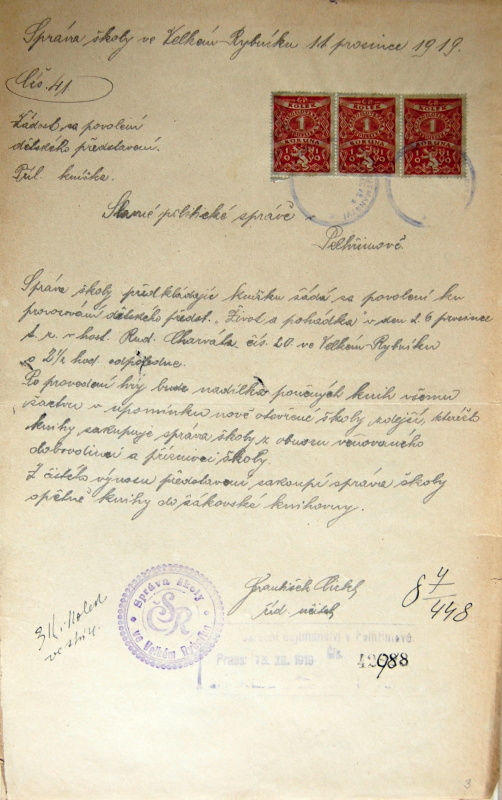 Správa školy ve Velkém Rybníku 11 prosince 1919.
Čís. 41
Žádost za povolení
dětského představení.
Příl. knížka.
KOLEK KOLEK KOLEK
1 1 1
KORUNA KORUNA KORUNA
Slavné politické správě
Pelhřimově.
Správa školy předkládajíc knížku žádá za povolení ku
provozování dětského předst. „Život a pohádka" v den 26 prosince
t. r. v host. Rud. Charváta čís. 20 ve Velkém Rybníku
o 2½ hod odpoledne.
Po provedení hry bude nadílka poučných knih všemu
žactvu v upomínku nově otevřené školy zdejší, kteréžto
knihy zakupuje správa školy z obnosu věnovaného
dobrodinci a příznivci školy.
Z čistého výnosu představení zakoupí správa školy
opětně knihy do žákovské knihovny.
Správa školy
ve Velkém Rybníku
František
říd. učitel
8 4/448
3 K kolek
Praes. 13. XII. 1919 Čís. 42988
3